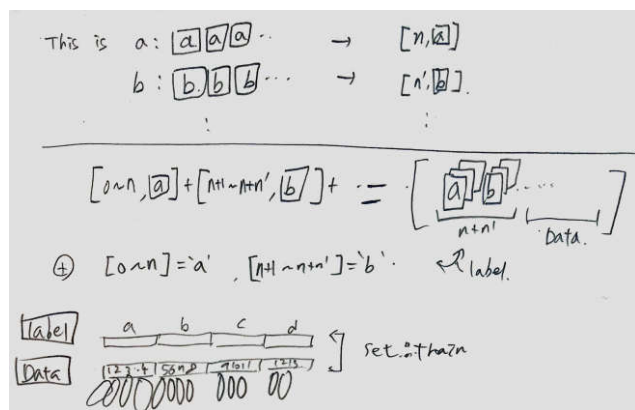 This is a: a a a .. → [n, a]
b: b b b ... → [n', b].
: :
[0~n, a] + [n+1~n+n', b] + · = [a b ....]
n+n' Data.
⊕ [0~n] = 'a' , [n+1~n+n'] = 'b' . label.
label a b c d
Data 1 2 3 4 5 6 7 8 9 10 11 12 13 set : train